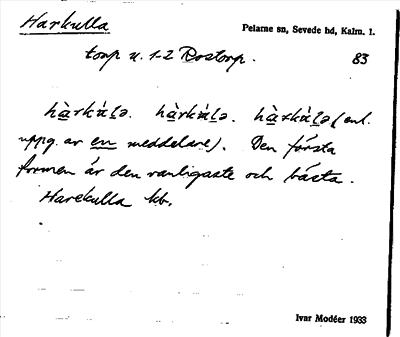 Harkulla
Pelarne sn, Sevede hd, Kalm. l.
torp u. 1-2 Rostorp.
83
hàrkùlə. hàrkùlə. hàrkùlə (enl.
uppg. av en meddelare). Den första
formen är den vanligaste och bästa.
Harekulla kb.
Ivar Modéer 1933